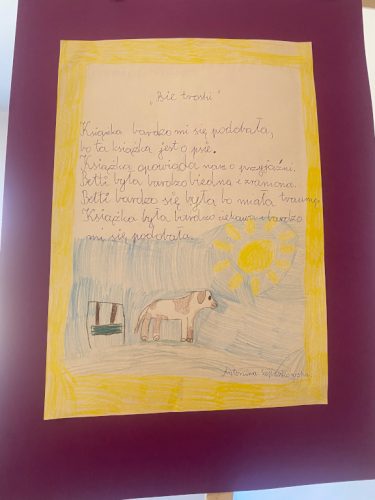 „Bez troski"
Książka bardzo mi się podobała,
bo ta książka jest o psie.
Książka opowiada nam o przyjaźni.
Betti była bardzo biedna i zraniona.
Betti bardzo się była bo miała traumę.
Książka była bardzo ciekawa i bardzo
mi się podobała.
Antonina